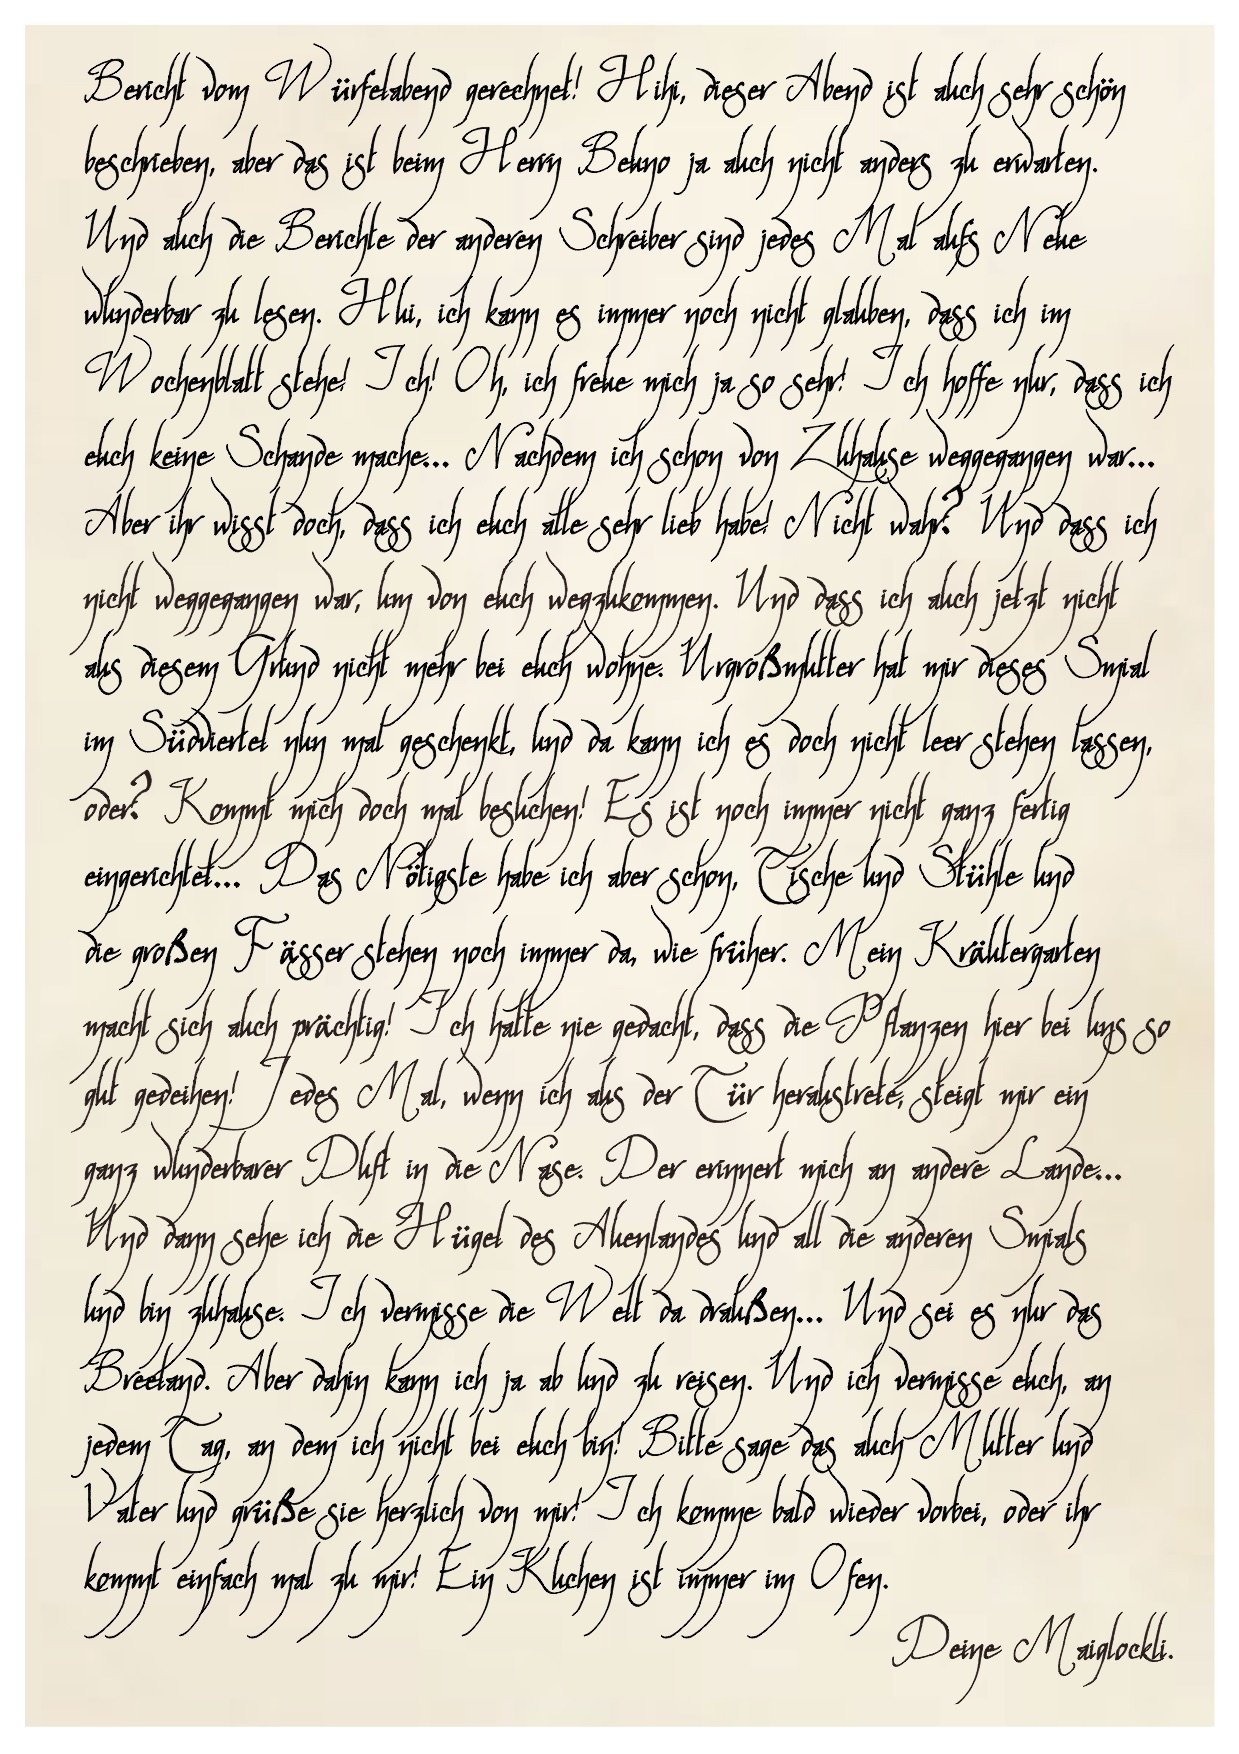 Bericht vom Würfelabend gerechnet! Hihi, dieser Abend ist auch sehr schön
beschrieben, aber das ist beim Herrn Beuno ja auch nicht anders zu erwarten.
Und auch die Berichte der anderen Schreiber sind jedes Mal aufs Neue
wunderbar zu lesen. Hui, ich kann es immer noch nicht glauben, dass ich im
Wochenblatt stehe! Ich! Oh, ich freue mich ja so sehr! Ich hoffe nur, dass ich
euch keine Schande mache... Nachdem ich schon von Zuhause weggegangen war...
Aber ihr wisst doch, dass ich euch alle sehr lieb habe! Nicht wahr? Und dass ich
nicht weggegangen war, um von euch wegzukommen. Und dass ich auch jetzt nicht
aus diesem Grund nicht mehr bei euch wohne. Urgroßmutter hat mir dieses Smial
im Südviertel nun mal geschenkt, und da kann ich es doch nicht leer stehen lassen,
oder? Kommt mich doch mal besuchen! Es ist noch immer nicht ganz fertig
eingerichtet... Das Nötigste habe ich aber schon, Tische und Stühle und
die großen Fässer stehen noch immer da, wie früher. Mein Kräutergarten
macht sich auch prächtig! Ich hätte nie gedacht, dass die Pflanzen hier bei uns so
gut gedeihen! Jedes Mal, wenn ich aus der Tür heraustrete, steigt mir ein
ganz wunderbarer Duft in die Nase. Der erinnert mich an andere Lande...
Und dann sehe ich die Hügel des Auenlandes und all die anderen Smials
und bin zuhause. Ich vermisse die Welt da draußen... Und sei es nur das
Breeland. Aber dahin kann ich ja ab und zu reisen. Und ich vermisse euch, an
jedem Tag, an dem ich nicht bei euch bin! Bitte sage das auch Mutter und
Vater und grüße sie herzlich von mir! Ich komme bald wieder vorbei, oder ihr
kommt einfach mal zu mir! Ein Kuchen ist immer im Ofen.
Deine Maiglöckli.